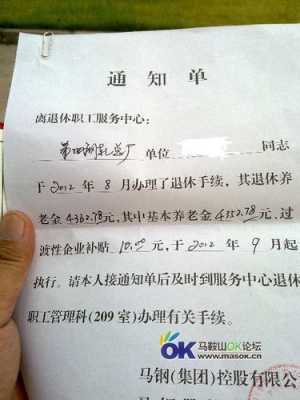 通知单
离退休职工服务中心：
第四钢轧总厂 单位 同志
于2012年8月办理了退休手续，其退休养
老金4362.78元，其中基本养老金4352.78元，过
渡性企业补贴10.00元，于2012年9月起
执行。请本人接通知单后及时到服务中心退休
职工管理科(209室)办理有关手续。
OK 马鞍山OK论坛
www.masok.cn
马钢(集团)控股有限公